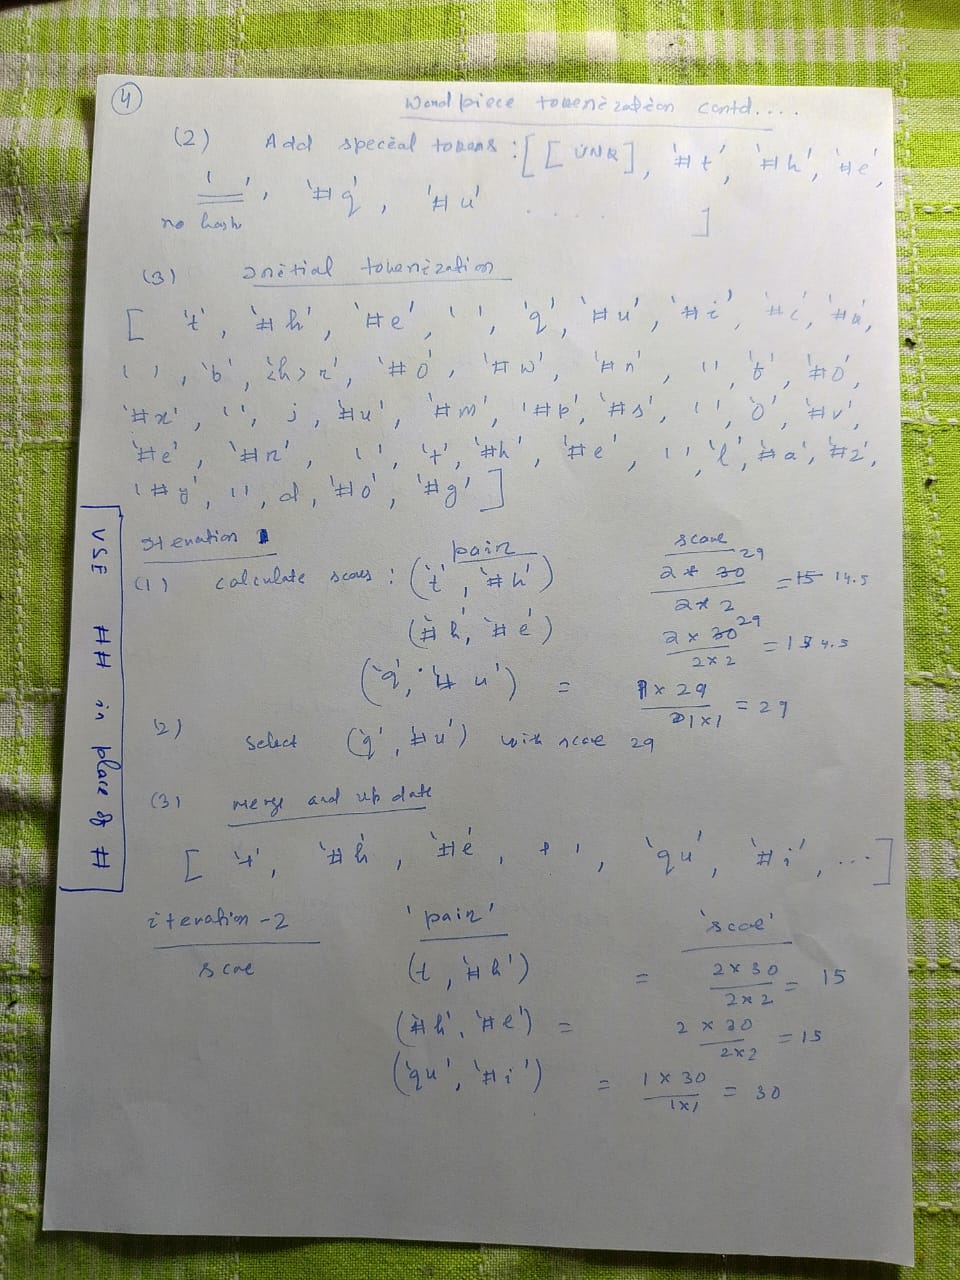 4
Wordpiece tokenization contd....
(2) Add special tokens : [ [ UNK ] , '#t' , '#h' , '#e' ,
' ' , '#q' , '#u' . . . . ]
no hash
(3) Initial tokenization
[ 't' , '#h' , '#e' , ' ' , 'q' , '#u' , '#i' , '#c' , '#k' ,
' ' , 'b' , <h> r' , '#o' , '#w' , '#n' , ' ' , 'f' , '#o' ,
'#x' , ' ' , j , '#u' , '#m' , '#p' , '#s' , ' ' , 'o' , '#v' ,
'#e' , '#r' , ' ' , 't' , '#h' , '#e' , ' ' , 'l' , '#a' , '#z' ,
'#y' , ' ' , d , '#o' , '#g' ]
Iteration 1
pair score
(1) calculate scores : ('t' , '#h') 2 * 30 29 / 2 * 2 = 15 14.5
('#h' , '#e') 2 x 30 29 / 2 x 2 = 14.5
('q' , '#u') = 1 x 29 / 1 x 1 = 29
(2) select ('q' , '#u') with score 29
(3) merge and update
[ 't' , '#h' , '#e' , ' ' , 'qu' , '#i' , ... ]
iteration - 2 'pair' 'scoe'
scoe (t , '#h') = 2 x 30 / 2 x 2 = 15
('#h' , '#e') = 2 x 30 / 2 x 2 = 15
('qu' , '#i') = 1 x 30 / 1 x 1 = 30
VSE ## in place of #